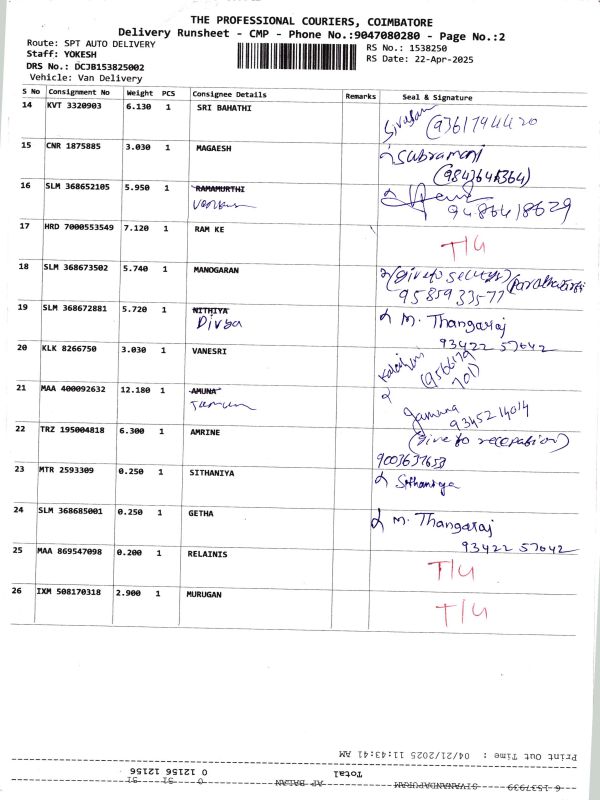 THE PROFESSIONAL COURIERS, COIMBATORE
Delivery Runsheet - CMP - Phone No.:9047080280 - Page No.:2
Route: SPT AUTO DELIVERY
RS No.: 1538250
Staff: YOKESH
RS Date: 22-Apr-2025
DRS No.: DCJB153825002
Vehicle: Van Delivery
S No Consignment No Weight PCS Consignee Details Remarks Seal & Signature
14 KVT 3320903 6.130 1 SRI BAHATHI
(9361794420
15 CNR 1875885 3.030 1 MAGAESH Subramani
16 SLM 368652105 5.950 1 RAMAMURTHI
9486418629
17 HRD 7000553549 7.120 1 RAM KE T/U
18 SLM 368673502 5.740 1 MANOGARAN
9585933577
19 SLM 368672881 5.720 1 NITHIYA M. Thangaraj
Divya 93422 57042
20 KLK 8266750 3.030 1 VANESRI
21 MAA 400092632 12.180 1 AMUNA
Jamuna
9345214014
22 TRZ 195004818 6.300 1 AMRINE (Give to recepation)
9003637653
23 MTR 2593309 0.250 1 SITHANIYA Sithaniya
24 SLM 368685001 0.250 1 GETHA M. Thangaraj
93422 57042
25 MAA 869547098 0.200 1 RELAINIS T/U
26 IXM 508170318 2.900 1 MURUGAN T/U
Print Out Time : 04/21/2025 11:43:41 AM
Total 0 12156 12156
6 1537939 SIVANANDAPURAM AP BALAN 0 31 31